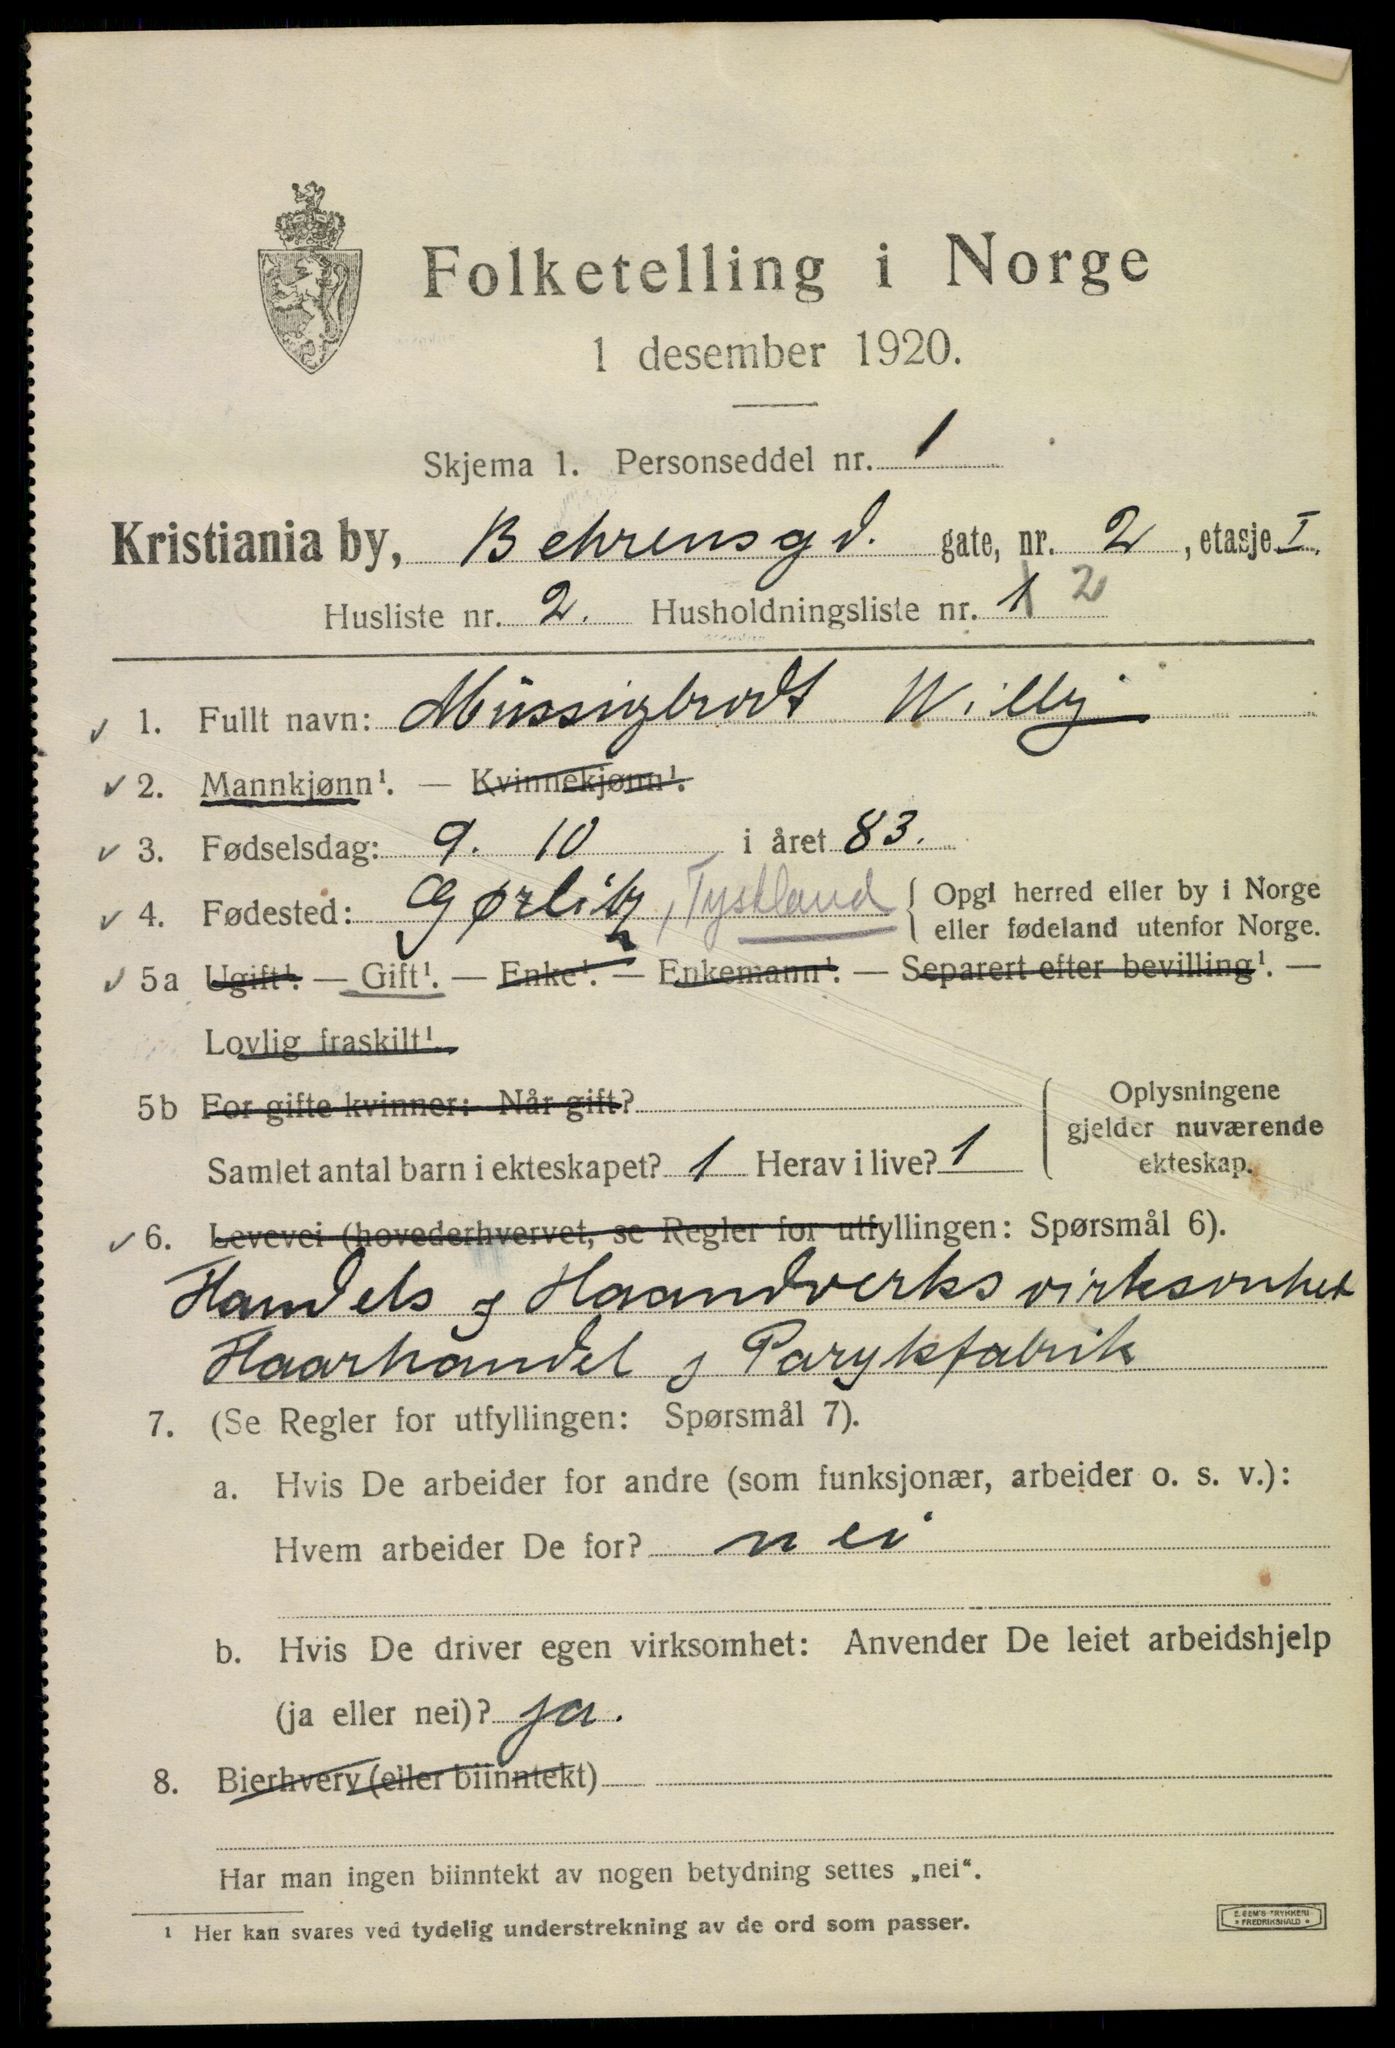 Folketelling i Norge
1 desember 1920.
Skjema 1. Personseddel nr. 1
Kristiania by, Behrensgd. gate, nr. 2, etasje I.
Husliste nr. 2. Husholdningsliste nr. 1 2
✓ 1. Fullt navn: Müssigbrodt Willy
✓ 2. Mannkjønn¹. — Kvinnekjønn¹.
✓ 3. Fødselsdag: 9. 10 i året 83.
✓ 4. Fødested: Gørlitz, Tyskland { Opgi herred eller by i Norge
eller fødeland utenfor Norge.
✓ 5a Ugift¹. — Gift¹. — Enke¹. — Enkemann¹. — Separert efter bevilling¹. —
Lovlig fraskilt¹.
5b For gifte kvinner: Når gift?
Samlet antal barn i ekteskapet? 1 Herav i live? 1
{ Oplysningene
gjelder nuværende
ekteskap.
✓ 6. Levevei (hovederhvervet, se Regler for utfyllingen: Spørsmål 6).
Handels og Haandverksvirksomhet
Haarhandel og Parykfabrik
7. (Se Regler for utfyllingen: Spørsmål 7).
a. Hvis De arbeider for andre (som funksjonær, arbeider o. s. v.):
Hvem arbeider De for? nei
b. Hvis De driver egen virksomhet: Anvender De leiet arbeidshjelp
(ja eller nei)? ja.
8. Bierhverv (eller biinntekt) —
Har man ingen biinntekt av nogen betydning settes „nei“.
¹ Her kan svares ved tydelig understrekning av de ord som passer.
E. SEM'S TRYKKERI
FREDRIKSHALD